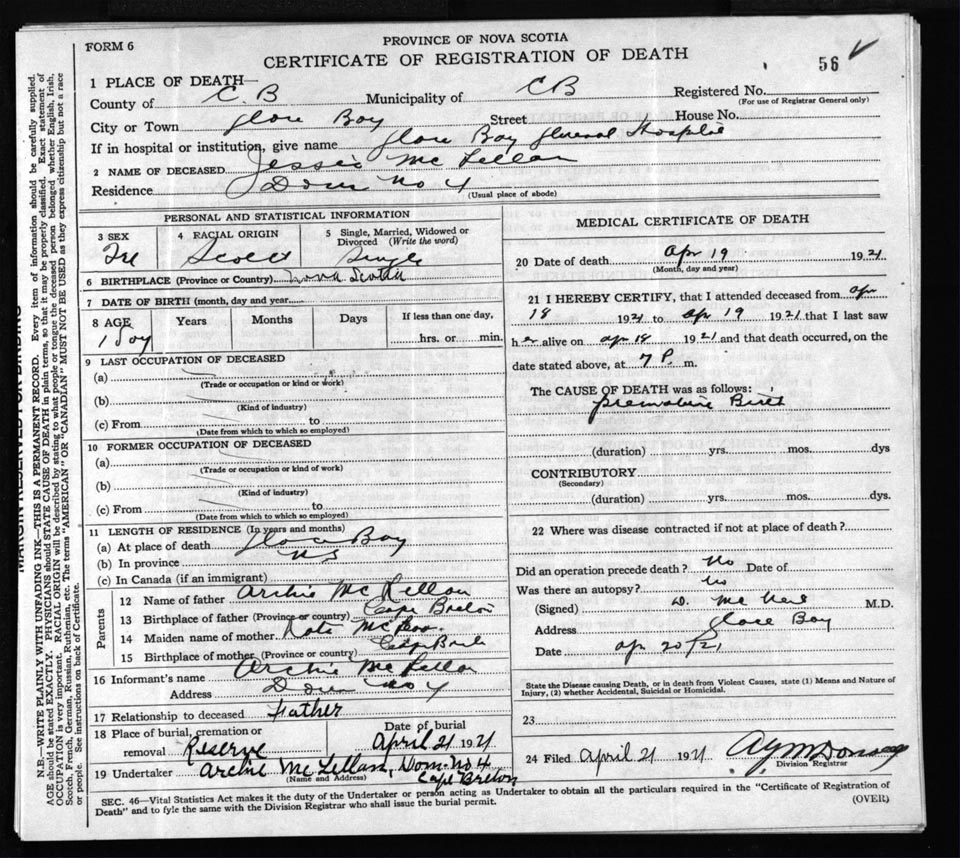 FORM 6
PROVINCE OF NOVA SCOTIA
CERTIFICATE OF REGISTRATION OF DEATH
56
1 PLACE OF DEATH—
County of C. B Municipality of CB Registered No.
(For use of Registrar General only)
City or Town Glace Bay Street House No.
If in hospital or institution, give name Glace Bay General Hospital
2 NAME OF DECEASED Jessie McLellan
Residence Dom No 4
(Usual place of abode)
PERSONAL AND STATISTICAL INFORMATION
3 SEX 4 RACIAL ORIGIN 5 Single, Married, Widowed or Divorced (Write the word)
Fe Scotch Single
6 BIRTHPLACE (Province or Country) Nova Scotia
7 DATE OF BIRTH (month, day and year)
8 AGE Years Months Days If less than one day,
1 Day hrs. or min.
9 LAST OCCUPATION OF DECEASED
(a)
(Trade or occupation or kind of work)
(b)
(Kind of industry)
(c) From to
(Date from which to which so employed)
10 FORMER OCCUPATION OF DECEASED
(a)
(Trade or occupation or kind of work)
(b)
(Kind of industry)
(c) From to
(Date from which to which so employed)
11 LENGTH OF RESIDENCE (In years and months)
(a) At place of death Glace Bay
(b) In province NS
(c) In Canada (if an immigrant)
Parents
12 Name of father Archie McLellan
13 Birthplace of father (Province or country) Cape Breton
14 Maiden name of mother Kate
15 Birthplace of mother (Province or country) Cape Breton
16 Informant's name Archie McLellan
Address Dom No 4
17 Relationship to deceased Father
18 Place of burial, cremation or removal Reserve
Date of burial April 21 1921
19 Undertaker Archie McLellan, Dom. No 4
(Name and Address) Cape Breton
MEDICAL CERTIFICATE OF DEATH
20 Date of death Apr 19 1921
(Month, day and year)
21 I HEREBY CERTIFY, that I attended deceased from Apr
18 1921 to Apr 19 1921 that I last saw
her alive on Apr 18 1921 and that death occurred, on the
date stated above, at 7 P. m.
The CAUSE OF DEATH was as follows:
Premature Birth
(duration) yrs. mos. dys
CONTRIBUTORY
(Secondary)
(duration) yrs. mos. dys.
22 Where was disease contracted if not at place of death?
Did an operation precede death? No Date of
Was there an autopsy? No
(Signed) D. McNeil M.D.
Address Glace Bay
Date Apr 20/21
State the Disease causing Death, or in death from Violent Causes, state (1) Means and Nature of
Injury, (2) whether Accidental, Suicidal or Homicidal.
23
24 Filed April 21 1921
Division Registrar
SEC. 46—Vital Statistics Act makes it the duty of the Undertaker or person acting as Undertaker to obtain all the particulars required in the "Certificate of Registration of
Death" and to fyle the same with the Division Registrar who shall issue the burial permit.
(OVER)
MARGIN RESERVED FOR BINDING
N.B.—WRITE PLAINLY WITH UNFADING INK—THIS IS A PERMANENT RECORD. Every item of information should be carefully supplied.
AGE should be stated EXACTLY. PHYSICIANS should STATE CAUSE OF DEATH in plain terms, so that it may be properly classified. Exact statement of
OCCUPATION is very important. RACIAL ORIGIN will be described by stating to what people or tongue the deceased person belonged whether English, Irish,
Scotch, French, German, Russian, Ruthenian, etc. The terms "AMERICAN" OR "CANADIAN" MUST NOT BE USED as they express citizenship but not a race
or people. See instructions on back of Certificate.